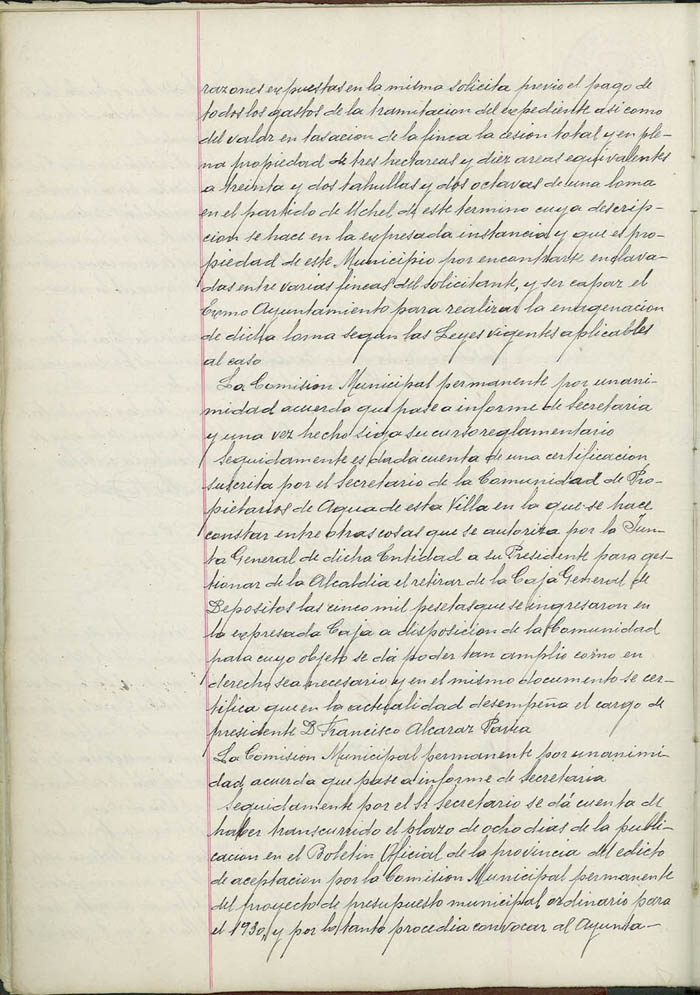 razones expuestas en la misma solicita previo el pago de
todos los gastos de la tramitacion del expediente asi como
del valor en tasacion de la finca la cesion total y en ple-
na propiedad de tres hectareas y diez areas equivalentes
a treinta y dos tahullas y dos octavas de una loma
en el partido de Uchel de este termino cuya descrip-
cion se hace en la expresada instancia y que es pro-
piedad de este Municipio por encontrarse enclava-
das entre varias fincas del solicitante, y ser capaz el
Exmo Ayuntamiento para realizar la enagenacion
de dicha loma segun las Leyes vigentes aplicables
al caso
La Comision Municipal permanente por unani-
midad acuerda que pase a informe de Secretaria
y una vez hecho siga su curso reglamentario
Seguidamente es dada cuenta de una certificacion
suscrita por el Secretario de la Comunidad de Pro-
pietarios de Agua de esta Villa en la que se hace
constar entre otras cosas que se autoriza por la Jun-
ta General de dicha Entidad a su Presidente para ges-
tionar de la Alcaldia el retirar de la Caja General de
Depositos las cinco mil pesetas que se ingresaron en
la expresada Caja a disposicion de la Comunidad
para cuyo objeto se dá poder tan amplio como en
derecho sea necesario y en el mismo documento se cer-
tifica que en la actualidad desempeña el cargo de
presidente D Francisco Alcaraz Pavia
La Comision Municipal permanente por unanimi-
dad acuerda que pase a informe de Secretaria
Seguidamente por el Sr Secretario se dá cuenta de
haber transcurrido el plazo de ocho dias de la publi-
cacion en el Boletin Oficial de la provincia del edicto
de aceptacion por la Comision Municipal permanente
del proyecto de presupuesto municipal ordinario para
el 1930, y por lo tanto procedia convocar al Ayunta-